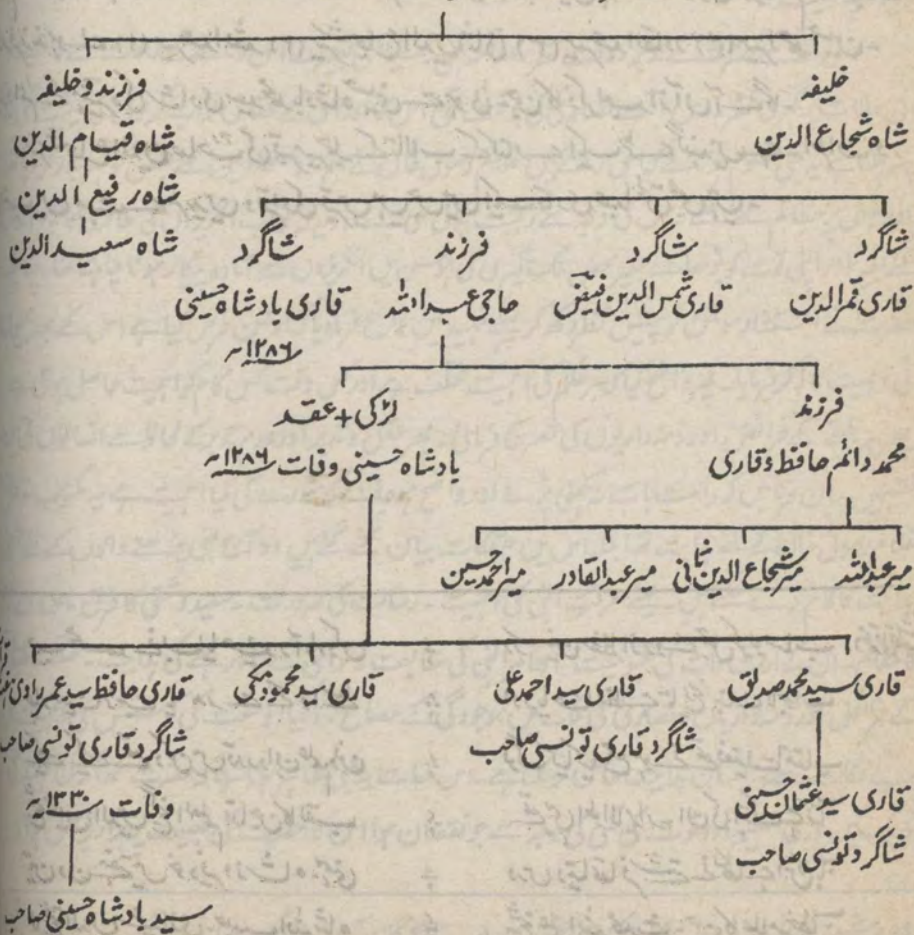 خلیفہ
شاہ شجاع الدین
فرزند و خلیفہ
شاہ قیام الدین
شاہ رفیع الدین
شاہ سعید الدین
شاگرد
قاری قمرالدین
شاگرد
قاری شمس الدین فیضؔ
فرزند
حاجی عبداللہ
شاگرد
قاری بادشاہ حسینی
۱۲۸۶ھ
فرزند
محمد دائم حافظ و قاری
لڑکی + عقد
بادشاہ حسینی وفات ۱۲۸۶ھ
میر عبداللہ
میر شجاع الدین ثانی
میر عبدالقادر
میر احمد حسین
قاری سید محمد صدیق
قاری سید احمد علی
شاگرد قاری تونسی صاحب
قاری سید محمود مکی
قاری حافظ سید عمر
شاگرد قاری تونسی صاحب
وفات ۱۳۳۰ھ
قاری سید عثمان حسینی
شاگرد تونسی صاحب
سید بادشاہ حسینی صاحب